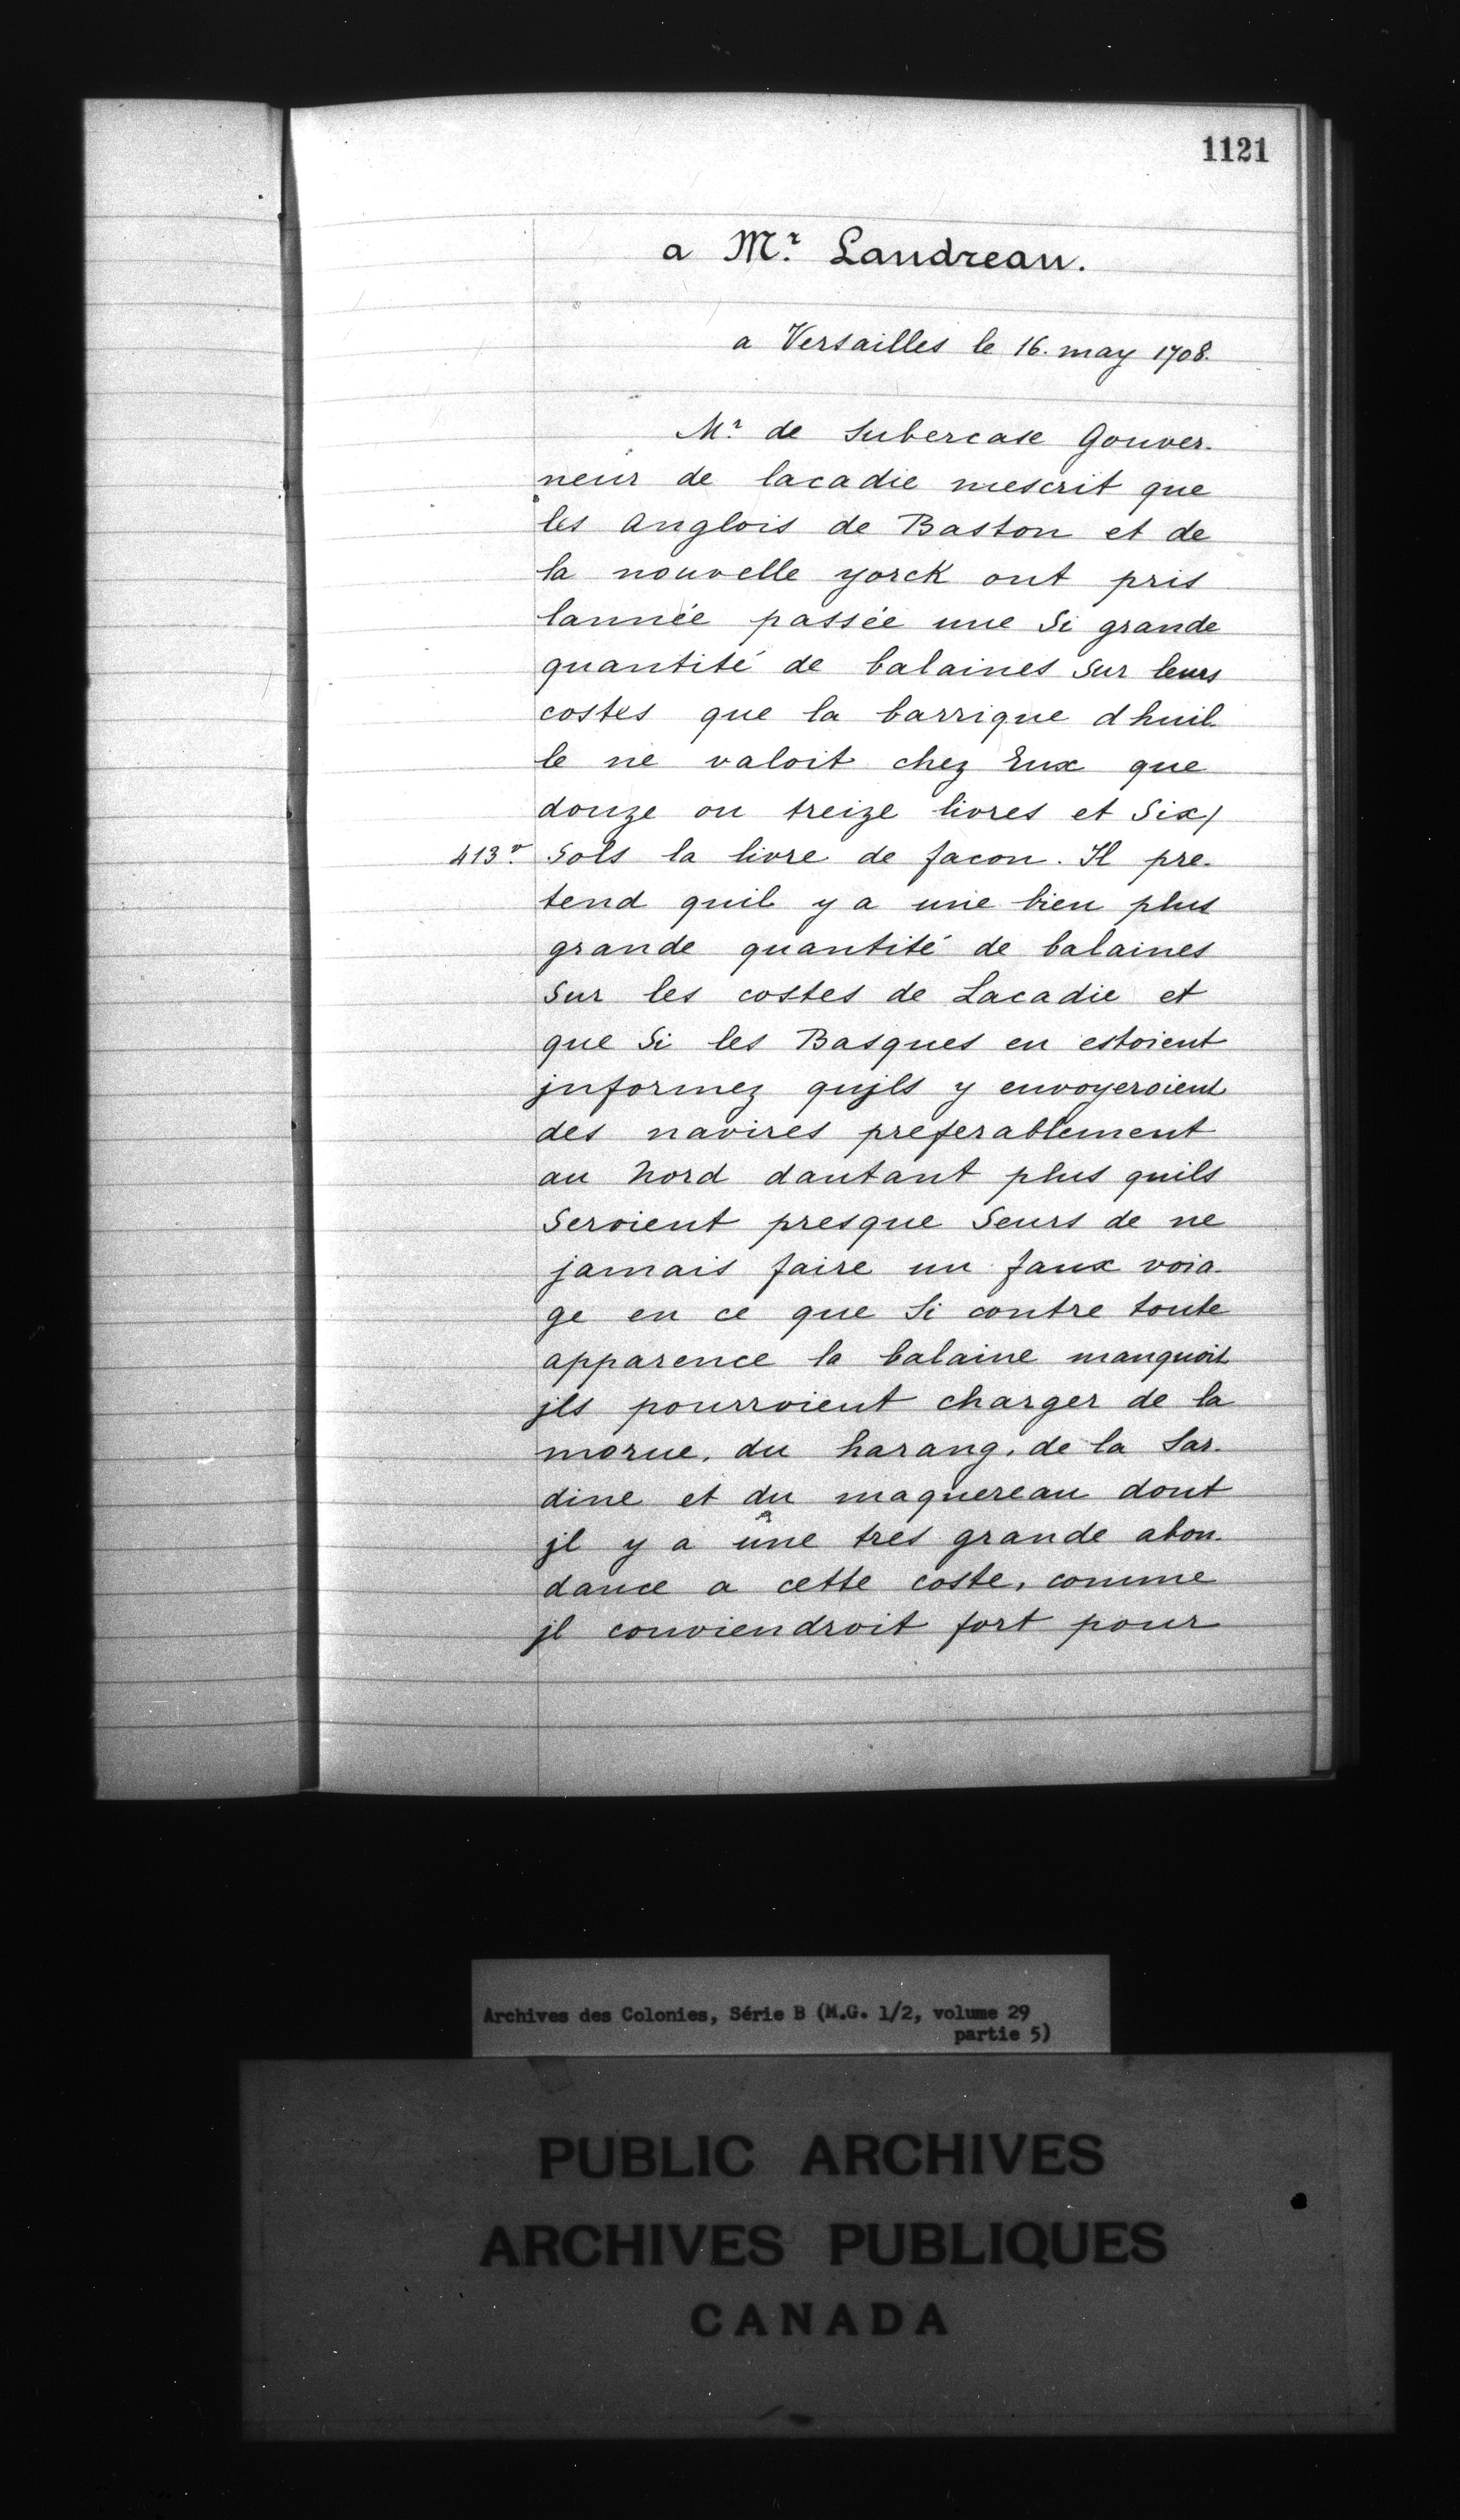 1121
a Mr. Landreau.
a Versailles le 16. may 1708.
Mr. de Subercase Gouver-
neur de lacadie mescrit que
les anglois de Baston et de
la nouvelle yorck ont pris
lannée passée une Si grande
quantité de balaines Sur leurs
costes que la barrique dhuil-
le ne valoit chez Eux que
douze ou treize livres et Six/
413 vo. Sols la livre de facon. Il pre-
tend quil y a une bien plus
grande quantité de balaines
Sur les costes de Lacadie et
que Si les Basques en estoient
jnformez qujls y envoyeroient
des navires preferablement
au Nord dautant plus quils
Seroient presque Seurs de ne
jamais faire un faux voia-
ge en ce que Si contre toute
apparence la balaine manquoit
jls pourroient charger de la
morue, du harang, de la Sar-
dine et du maquereau dont
jl y a une tres grande abon-
dance a cette coste, comme
jl conviendroit fort pour
Archives des Colonies, Série B (M.G. 1/2, volume 29
partie 5)
PUBLIC ARCHIVES
ARCHIVES PUBLIQUES
CANADA